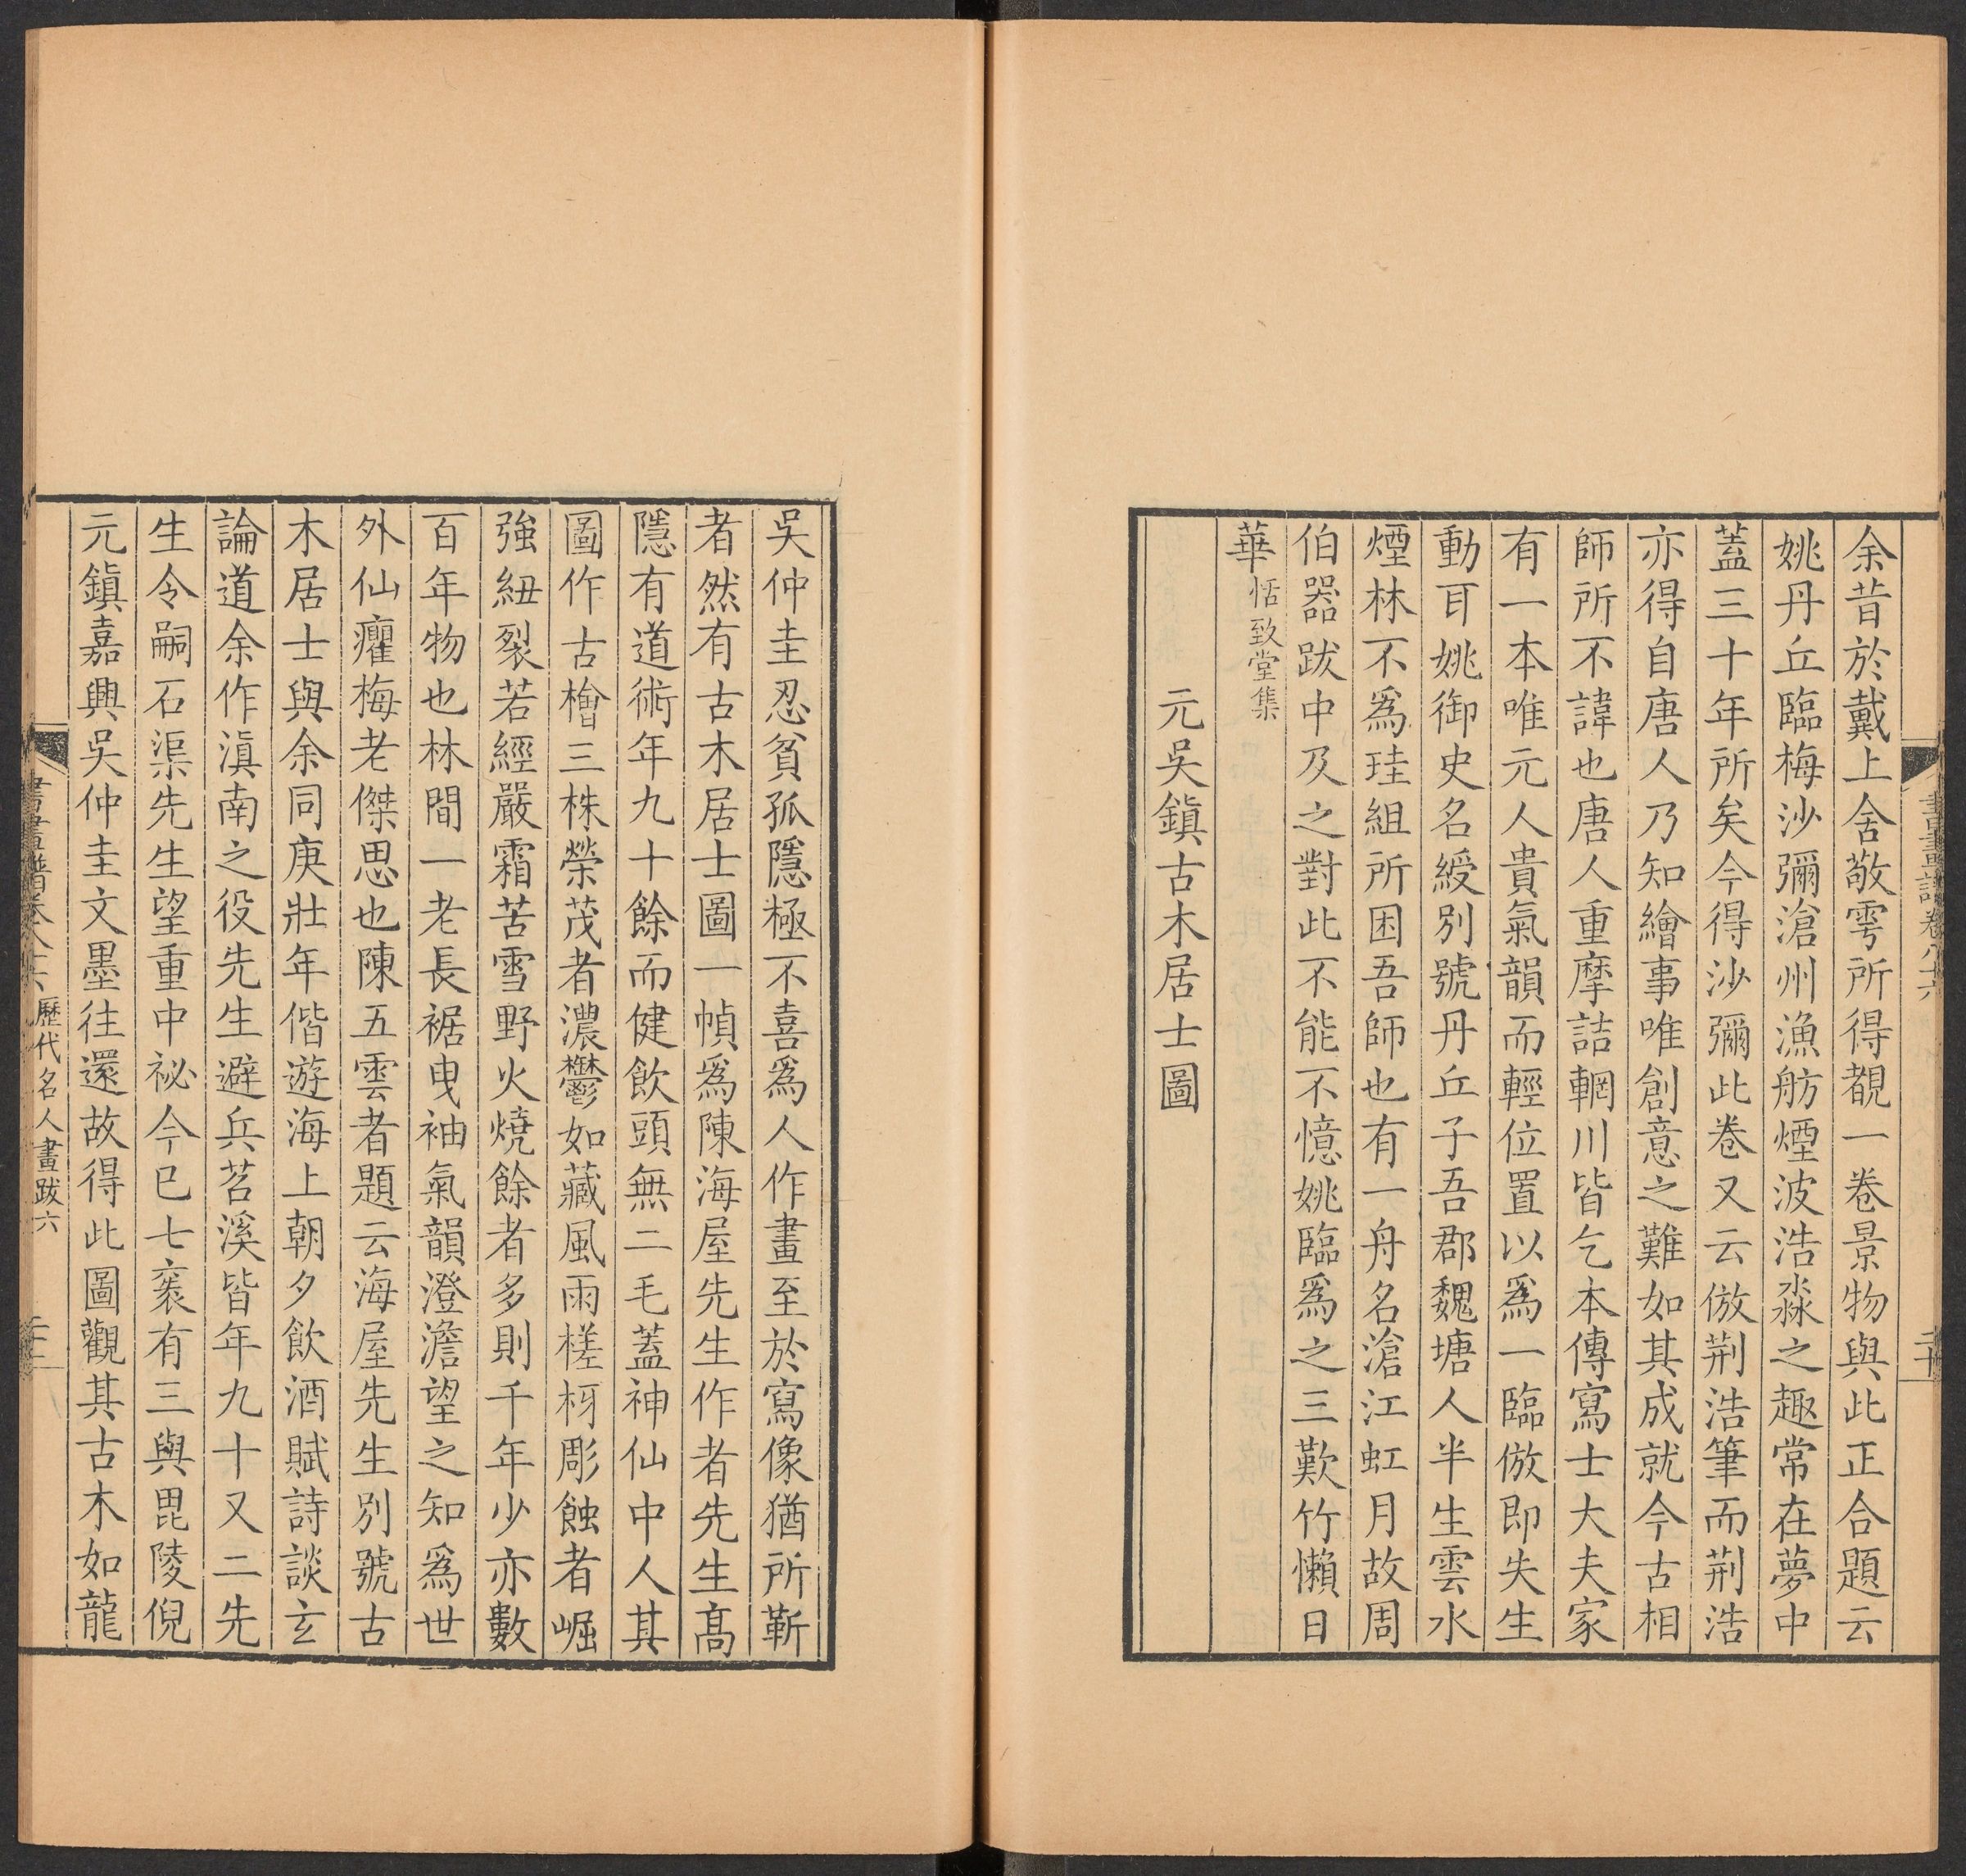 余昔於戴上舍敬雩所得覩一卷景物與此正合題云
姚丹丘臨梅沙彌滄州漁舫煙波浩淼之趣常在夢中
蓋三十年所矣今得沙彌此卷又云倣荆浩筆而荆浩
亦得自唐人乃知繪事唯創意之難如其成就今古相
師所不諱也唐人重摩詰輞川皆乞本傳寫士大夫家
有一本唯元人貴氣韻而輕位置以爲一臨倣即失生
動耳姚御史名綬別號丹丘子吾郡魏塘人半生雲水
煙林不爲珪組所困吾師也有一舟名滄江虹月故周
伯器跋中及之對此不能不憶姚臨爲之三歎竹懶日
華恬致堂集
元吳鎮古木居士圖
書畫譜卷八十六
二十
吳仲圭忍貧孤隱極不喜爲人作畫至於寫像猶所靳
者然有古木居士圖一幀爲陳海屋先生作者先生髙
隱有道術年九十餘而健飲頭無二毛蓋神仙中人其
圖作古檜三株榮茂者濃鬱如藏風雨槎枒彫蝕者崛
強紐裂若經嚴霜苦雪野火燒餘者多則千年少亦數
百年物也林間一老長裾曳袖氣韻澄澹望之知爲世
外仙癯梅老傑思也陳五雲者題云海屋先生別號古
木居士與余同庚壯年偕遊海上朝夕飲酒賦詩談玄
論道余作滇南之役先生避兵苕溪皆年九十又二先
生令嗣石渠先生望重中祕今巳七袠有三與毘陵倪
元鎮嘉興吳仲圭文墨往還故得此圖觀其古木如龍
書畫譜卷八十六 歷代名人畫跋六